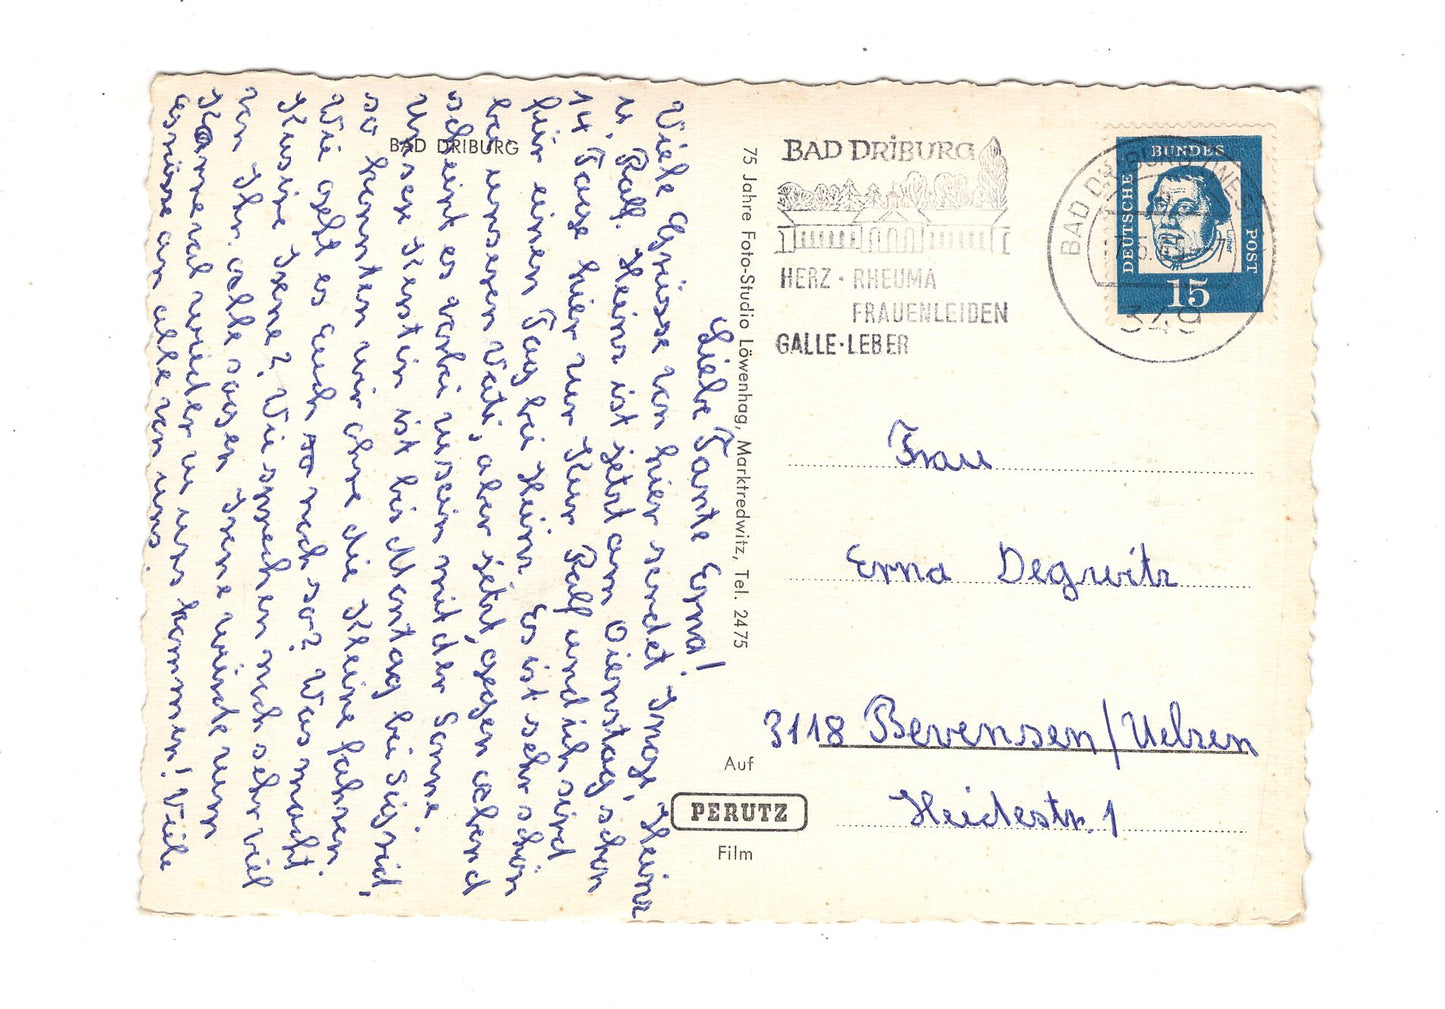 BAD DRIBURG
Liebe Tante Erna!
Viele Grüsse von hier sendet Inge, Heinz
u. Ralf. Heinz ist jetzt am Dienstag schon
14 Tage hier zur Kur Ralf und ich sind
für einen Tag bei Heinz. Es ist sehr schön
bei unseren Vati, aber jetzt gegen abend
scheint es vorbei zu sein mit der Sonne.
Unsere Kerstin ist bis Montag bei Sigrid,
so konnten wir ohne die Kleine fahren.
Wie geht es Euch so noch so? Was macht
Kusine Irene? Wir sprechen noch sehr viel
von Ihr. alle sagen Irene würde zum
Karneval wieder zu uns kommen! Viele
Grüsse an alle von uns.
75 Jahre Foto-Studio Löwenhag, Marktredwitz, Tel. 2475
BAD DRIBURG
HERZ · RHEUMA
FRAUENLEIDEN
GALLE · LEBER
BAD DRIBURG (WE
349
DEUTSCHE BUNDES POST
15
Frau
Erna Degwitz
3118 Bevensen/Uelzen
Heidestr. 1
Auf
PERUTZ
Film